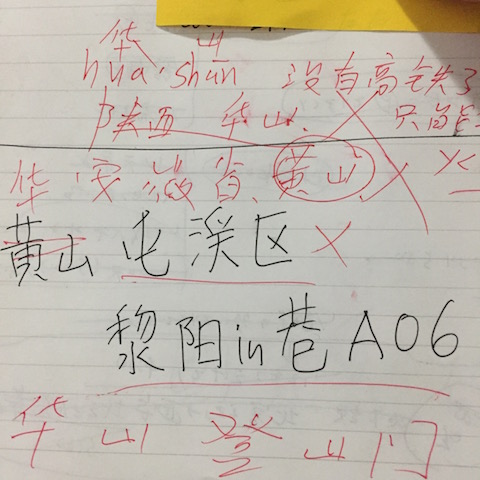 华 山
hua·shan 没有高铁了
陕西 华山、
华 安 徽省、黄山、
黄山 屯溪区
黎阳in巷A06
华 山 登山门